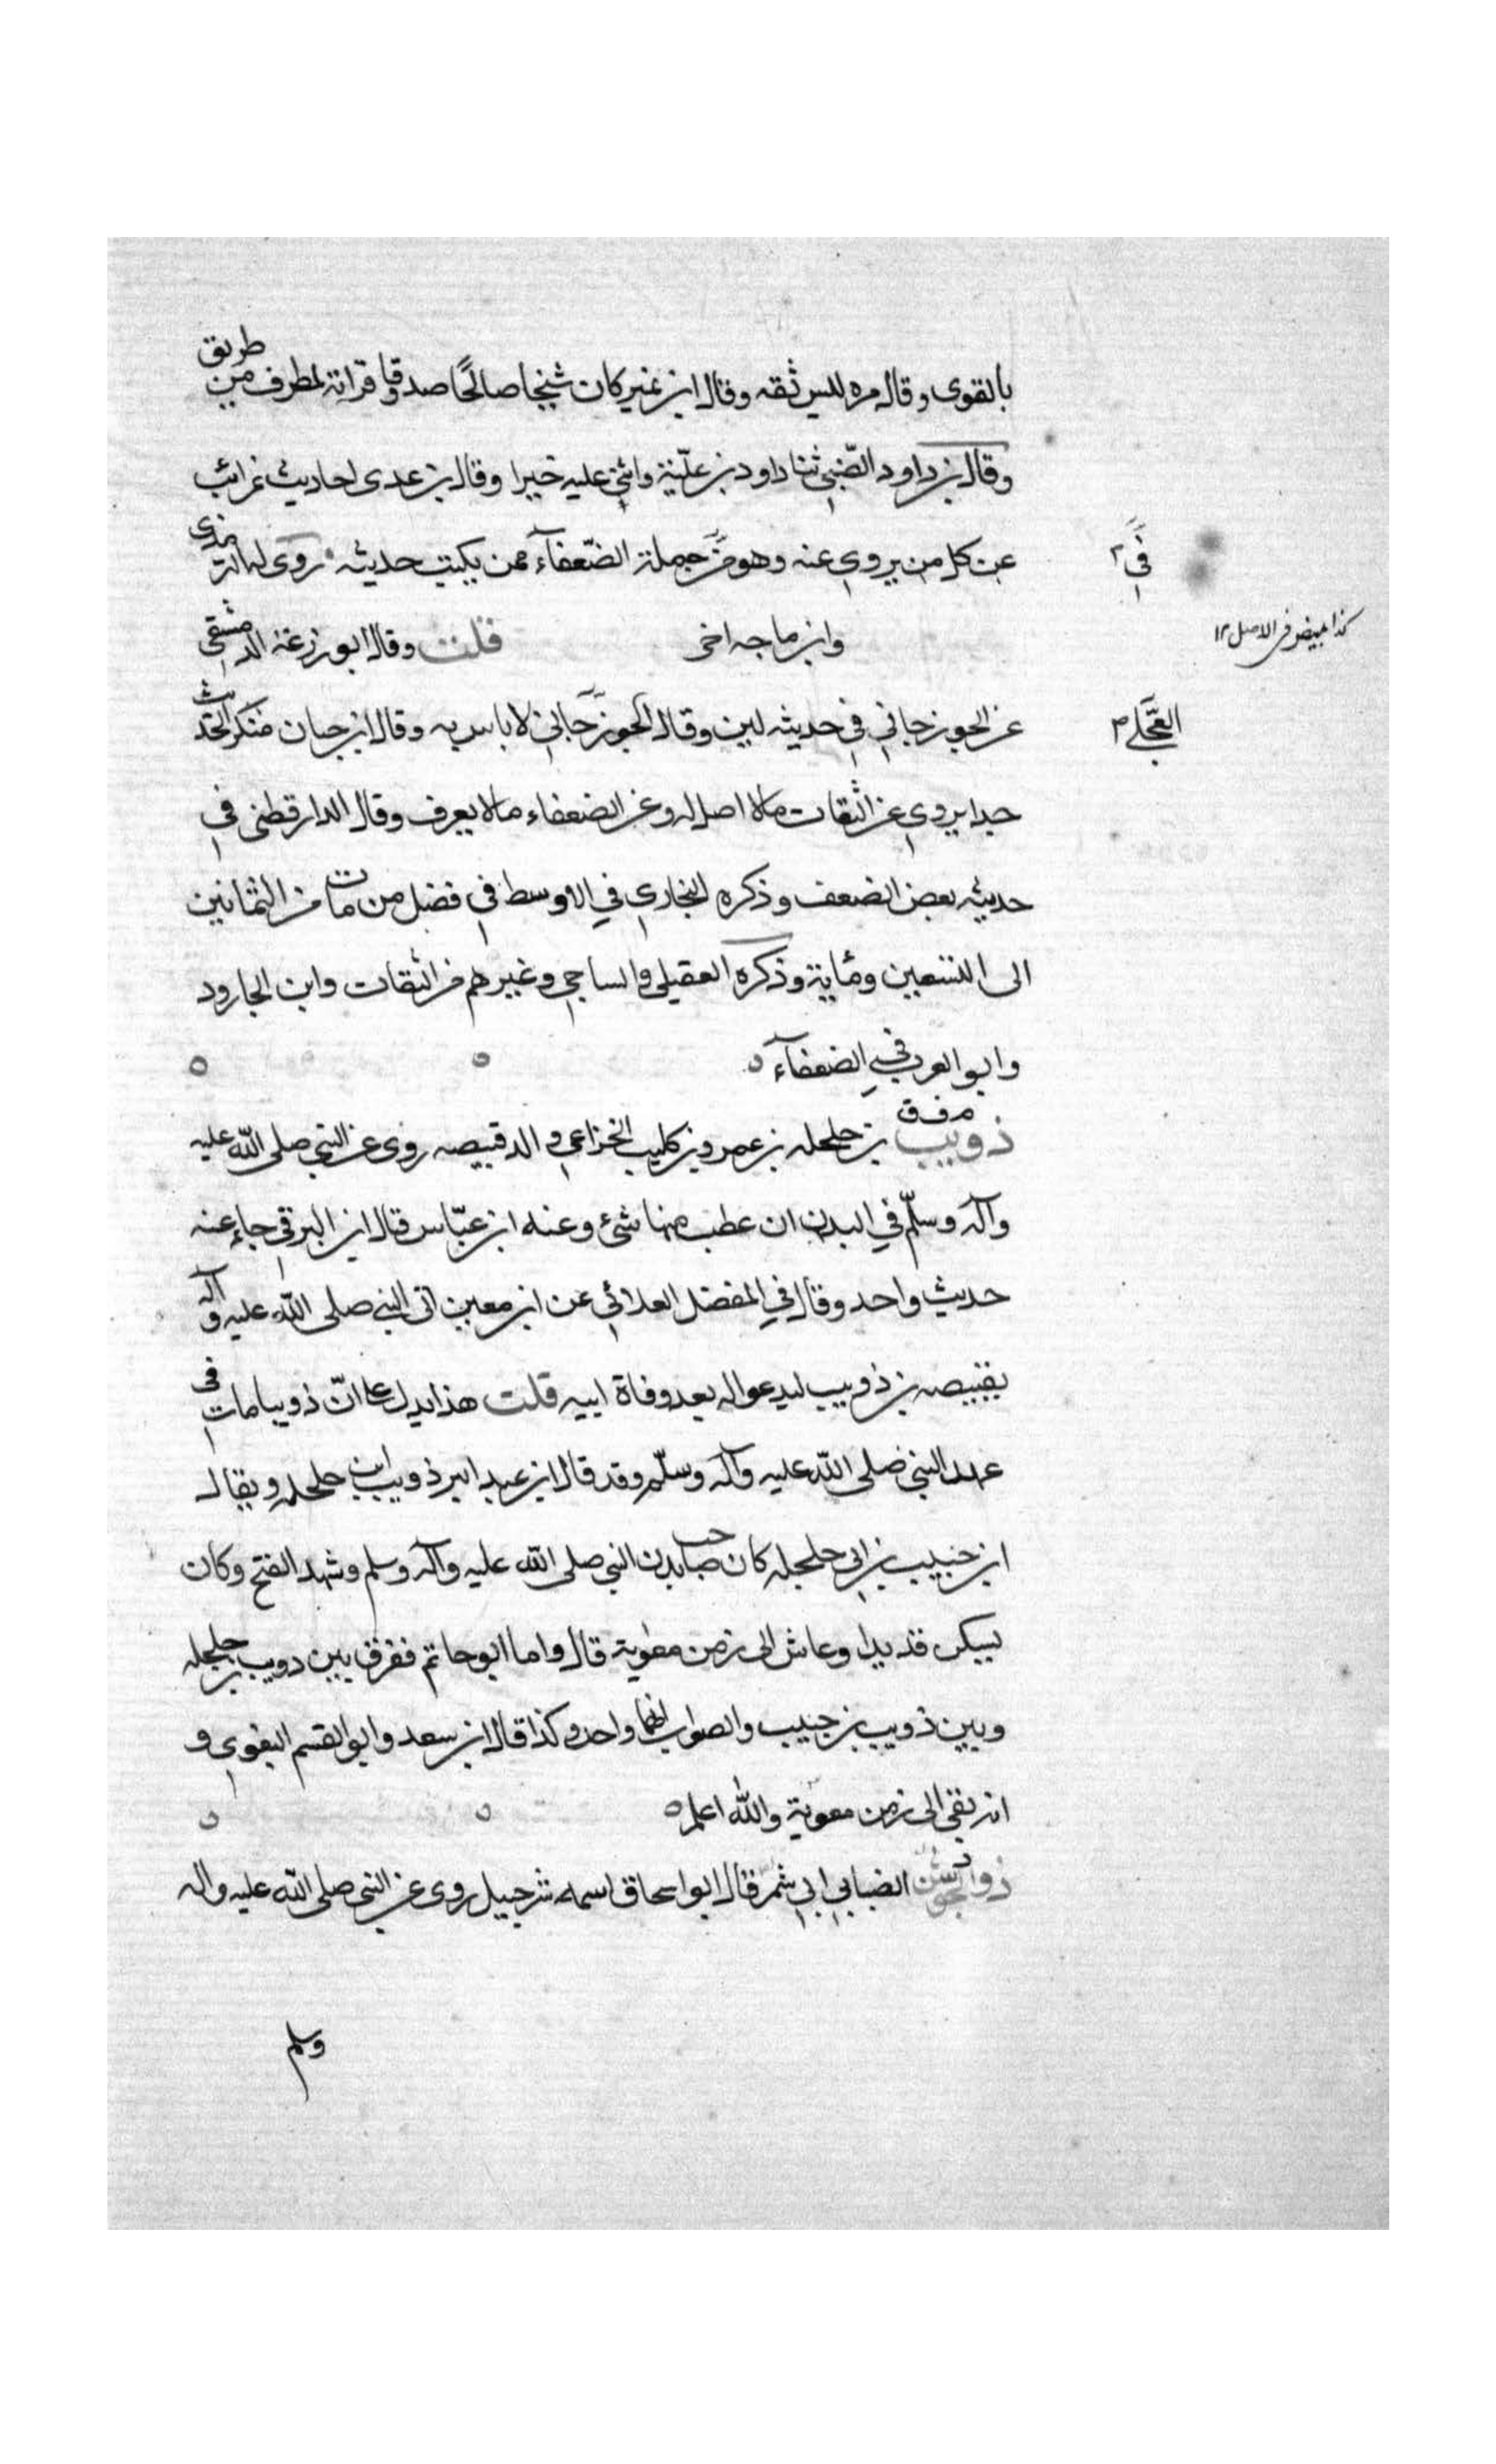 بالقوى وقال مره ليس ثقه وقال ابن نمير كان شيخا صالحًا صدوقا قرابة لمطرف من طريق
وقال بن داود الضّبى ثنا داود بن علبة واثنى عليه خيرا وقال بن عدى احاديث غرائب
عن كل من يروى عنه وهو من جملة الضّعفآء ممن يكتب حديثه روى له الترمذى
فى
وابن ماجه اخر قلت وقال ابو زرعة الدمشقى
كذا مبيض فى الاصل ١٢
عن الجوزجانى فى حديثه لين وقال الجوزجانى لا باس به وقال ابن حبان منكر الحديث
العجلى
جدا يروى عن الثقات مالا اصل له وعن الضعفاء مالا يعرف وقال الدارقطنى فى
حديثه بعض الضعف وذكره البخارى فى الاوسط فى فضل من مات من الثمانين
الى التسعين ومئاية وذكره العقيلى والساجى وغيرهم من الثقات وابن الجارود
وابو العرب فى الضعفآء
م ف ق
ذويب بن حلحله بن عمرو بن كليب الخزاعى والد قبيصه روى عن النبى صلى الله عليه
وآله وسلّم فى البدن ان عطب منها شئ وعنه ابن عبّاس قال ابن البرقى جاء عنه
حديث واحد وقال فى المفضل العلائى عن ابن معين اتى النبى صلى الله عليه وآله
بقبيصه بن ذويب ليدعو له بعد وفاة ابيه قلت هذا يدل على انّ ذويبا مات فى
عهد النبى صلى الله عليه وآله وسلّم وقد قال ابن عبد البر ذويب ابن حلحله ويقال
ابن حبيب بن ابى حلحله كان صاحب بدن النبى صلى الله عليه وآله وسلم وشهد الفتح وكان
يسكن قديدا وعاش الى زمن معوية قال واما ابو حاتم ففرق بين دويب بن حلحله
وبين ذويب بن حبيب والصواب انهما واحد وكذا قال ابن سعد وابو القسم البغوى و
انه بقى الى زمن معوية والله اعلم
ذوالجوشن الضبابى ابى شمر قال ابو اسحاق اسمه شرحبيل روى عن النبى صلى الله عليه واله
وسلم